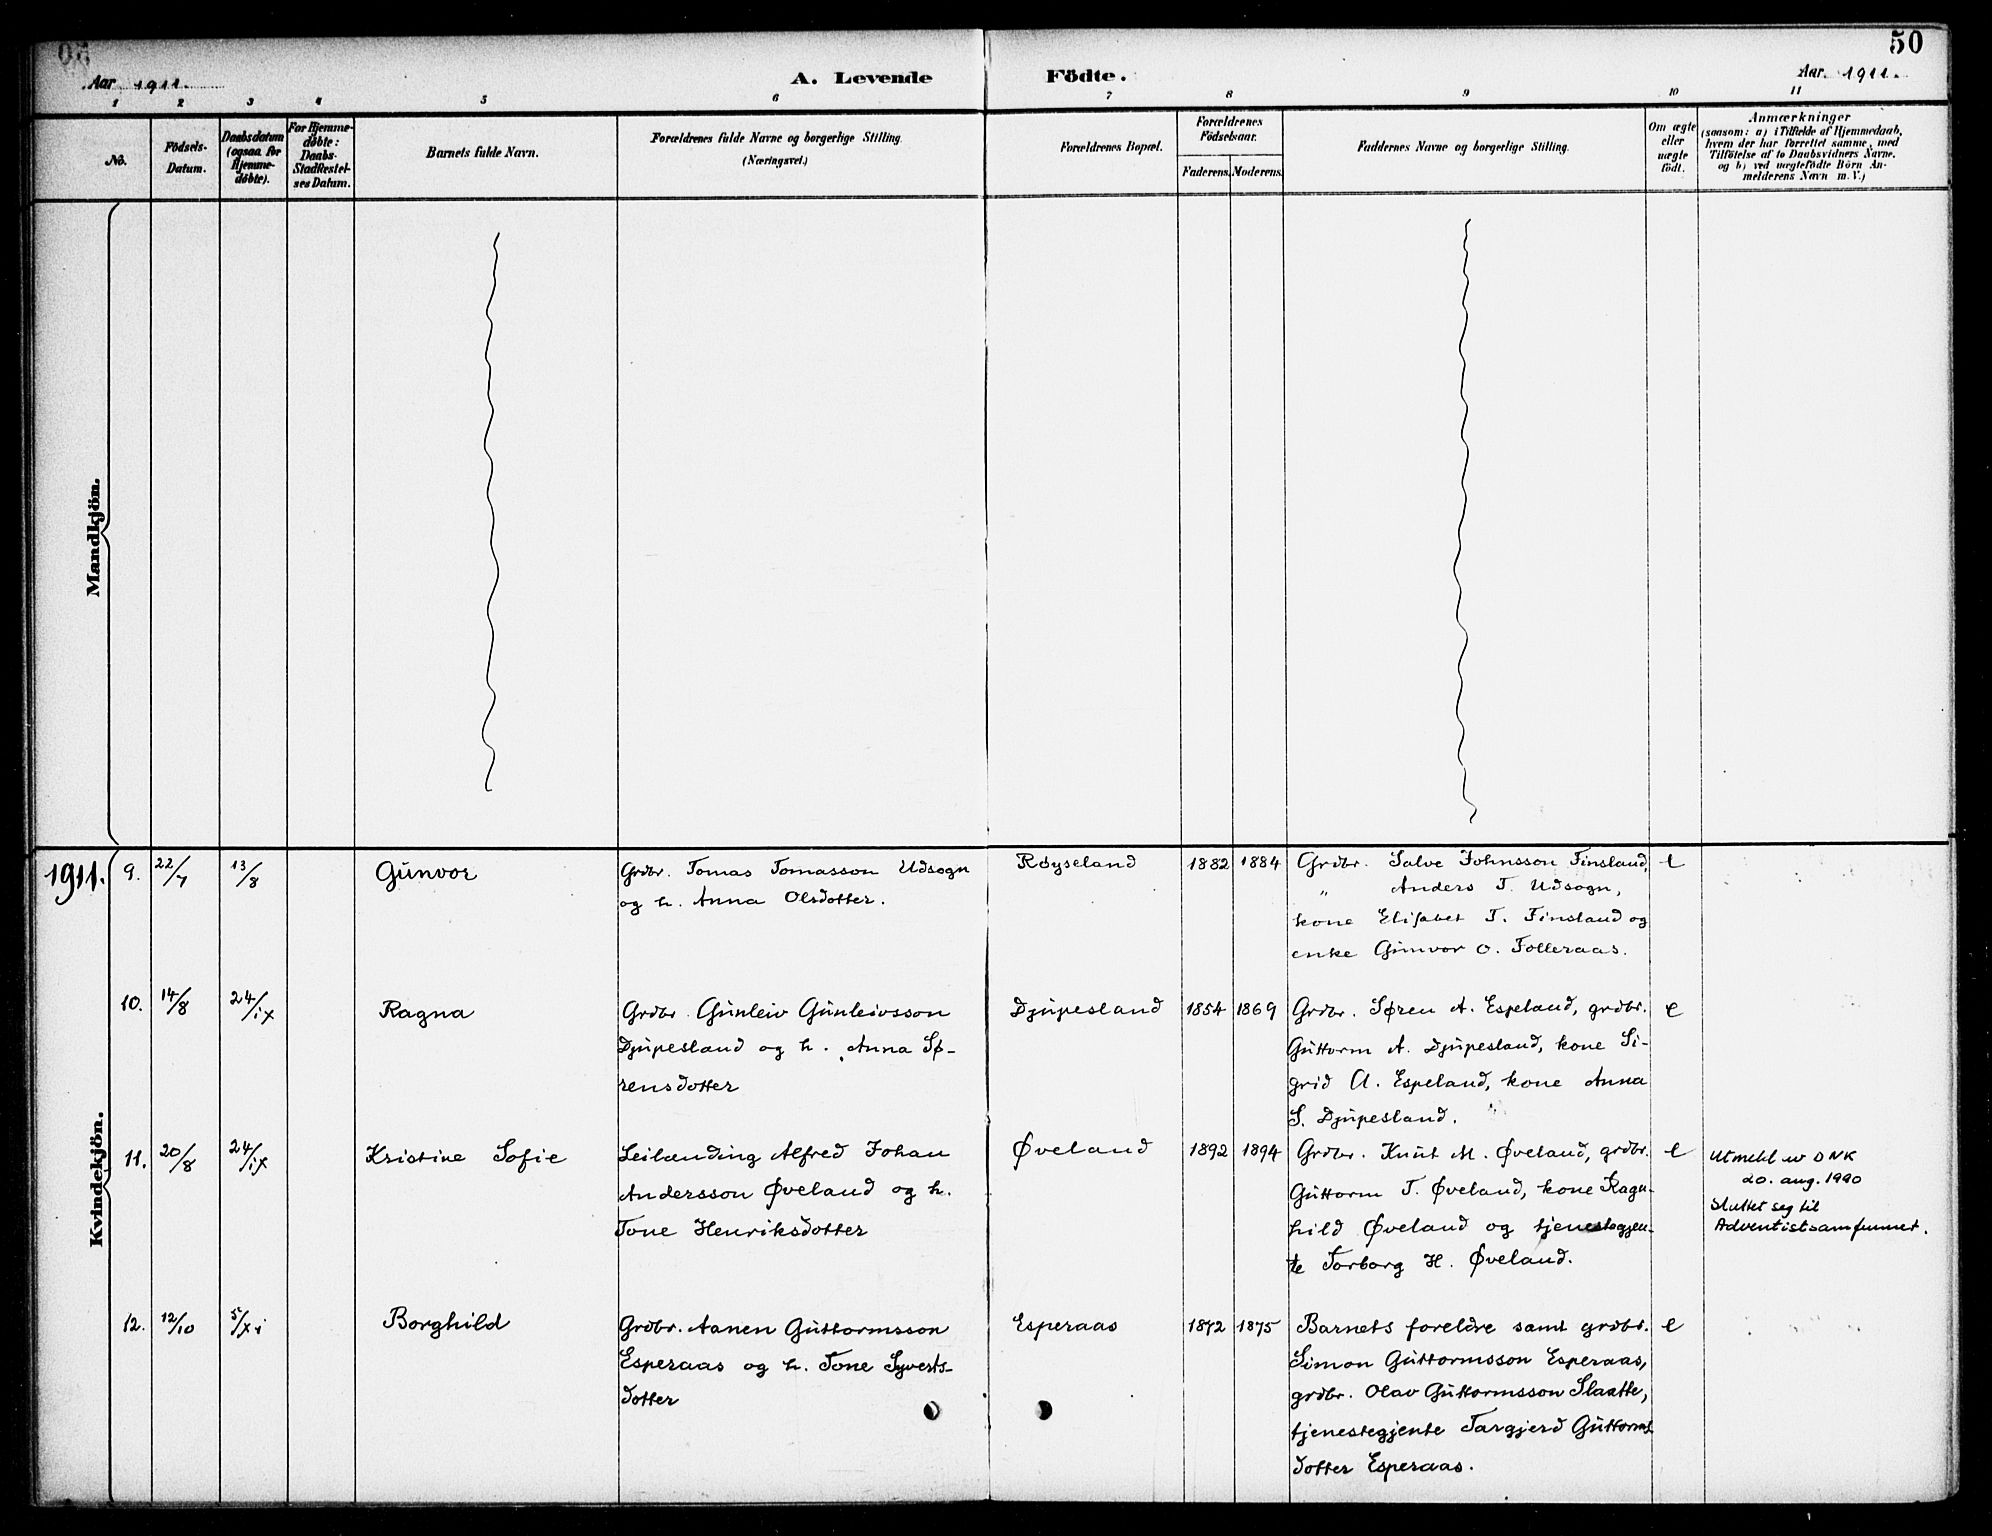 50
Aar 1911. A. Levende Födte. Aar. 1911.
1 2 3 4 5 6 7 8 9 10 11
No.
Födsels-
Datum.
Daabsdatum
(ogsaa for
Hjemme-
döbte).
For Hjemme-
döbte:
Daabs-
Stadfestel-
ses Datum.
Barnets fulde Navn.
Forældrenes fulde Navne og borgerlige Stilling.
(Næringsvei.)
Forældrenes Bopæl.
Forældrenes
Födselsaar.
Faderens. Moderens.
Faddernes Navne og borgerlige Stilling.
Om ægte
eller
uægte
födt.
Anmærkninger
(saasom: a) i Tilfælde af Hjemmedaab,
hvem der har forrettet samme, med
Tilföielse af to Daabsvidners Navne,
og b) ved uægtefödte Börn An-
melderens Navn m. V.)
Mandkjön.
Kvindekjön.
1911.
9. 22/7 13/8 Gunvor
Grdbr. Tomas Tomasson Udsogn
og h. Anna Olsdotter.
Røyseland 1882 1884
Grdbr. Salve Johnsson Finsland,
" Anders T. Udsogn,
kone Elisabet T. Finsland og
enke Gunvor O. Folleraas.
e
10. 14/8 24/ix Ragna
Grdbr. Gunleiv Gunleivsson
Djupesland og h. Anna Sø-
rensdotter
Djupesland 1854 1869
Grdbr. Søren A. Espeland, grdbr.
Guttorm A. Djupesland, kone Si-
grid A. Espeland, kone Anna
S. Djupesland.
e
11. 20/8 24/ix Kristine Sofie
Leilænding Alfred Johan
Andersson Øveland og h.
Tone Henriksdotter
Øveland 1892 1894
Grdbr. Knut M. Øveland, grdbr.
Guttorm T. Øveland, kone Ragn-
hild Øveland og tjenestegjen-
te Torborg H. Øveland.
e
Utmeldt av DNK
20. aug. 1990
Sluttet seg til
Adventistsamfunnet.
12. 12/10 5/xi Borghild
Grdbr. Aanen Guttormsson
Esperaas og h. Tone Syverts-
dotter
Esperaas 1872 1875
Barnets foreldre samt grdbr.
Simon Guttormsson Esperaas,
grdbr. Olav Guttormsson Slaatte,
tjenestegjente Targjerd Guttorms
dotter Esperaas.
e